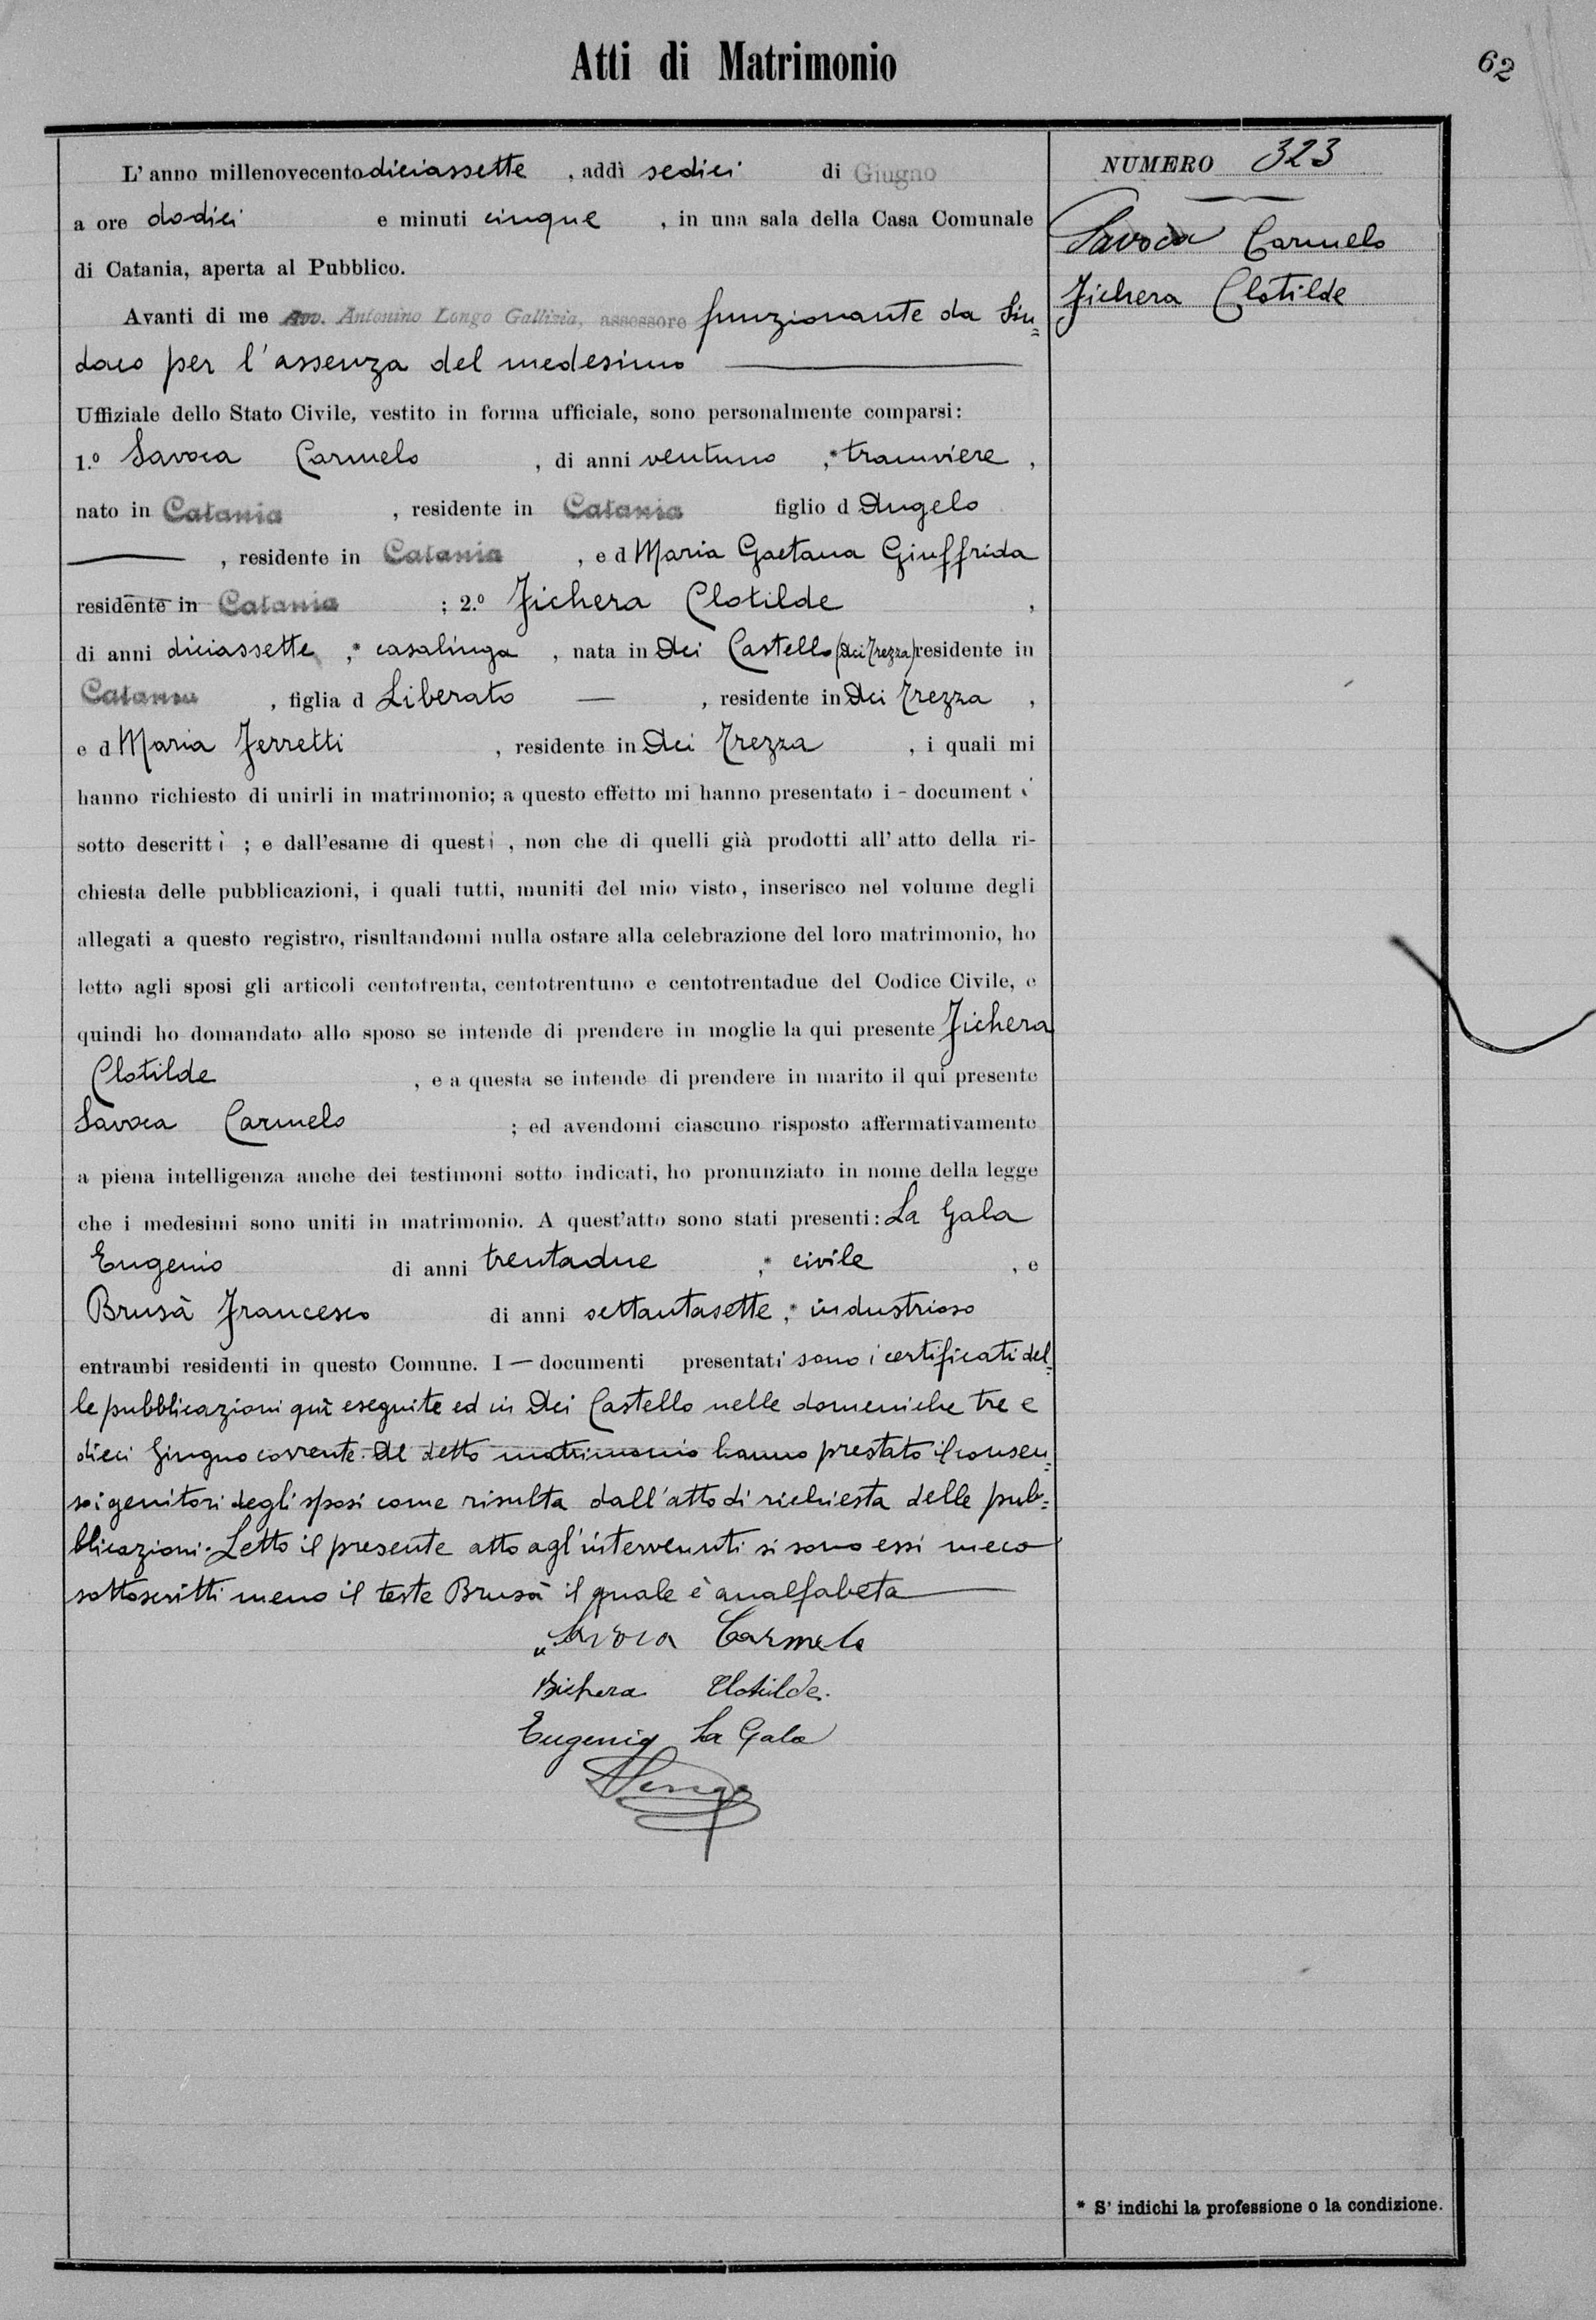 Atti di Matrimonio
62
L'anno millenovecento diciassette, addì sedici di Giugno
a ore dodici e minuti cinque, in una sala della Casa Comunale
di Catania, aperta al Pubblico.
Avanti di me Avv. Antonino Longo Gallizia, assessore funzionante da Sin=
daco per l'assenza del medesimo
Uffiziale dello Stato Civile, vestito in forma ufficiale, sono personalmente comparsi:
1.º Savoca Carmelo, di anni ventuno,* tramviere,
nato in Catania, residente in Catania figlio d Angelo
—, residente in Catania, e d Maria Gaetana Giuffrida
residente in Catania; 2.º Fichera Clotilde,
di anni diciassette,* casalinga, nata in Aci Castello (Aci Trezza) residente in
Catania, figlia d Liberato —, residente in Aci Trezza,
e d Maria Ferretti, residente in Aci Trezza, i quali mi
hanno richiesto di unirli in matrimonio; a questo effetto mi hanno presentato i - documenti
sotto descritti; e dall'esame di questi, non che di quelli già prodotti all'atto della ri-
chiesta delle pubblicazioni, i quali tutti, muniti del mio visto, inserisco nel volume degli
allegati a questo registro, risultandomi nulla ostare alla celebrazione del loro matrimonio, ho
letto agli sposi gli articoli centotrenta, centotrentuno e centotrentadue del Codice Civile, e
quindi ho domandato allo sposo se intende di prendere in moglie la qui presente Fichera
Clotilde, e a questa se intende di prendere in marito il qui presente
Savoca Carmelo; ed avendomi ciascuno risposto affermativamente
a piena intelligenza anche dei testimoni sotto indicati, ho pronunziato in nome della legge
che i medesimi sono uniti in matrimonio. A quest'atto sono stati presenti: La Gala
Eugenio di anni trentadue,* civile, e
Brusà Francesco di anni settantasette,* industrioso
entrambi residenti in questo Comune. I — documenti presentati sono i certificati del=
le pubblicazioni quì eseguite ed in Aci Castello nelle domeniche tre e
dieci Giugno corrente. Al detto matrimonio hanno prestato il consen=
so i genitori degli sposi come risulta dall'atto di richiesta delle pub=
blicazioni. Letto il presente atto agl'intervenuti si sono essi meco
sottoscritti meno il teste Brusà il quale è analfabeta
Savoca Carmelo
Fichera Clotilde.
Eugenio La Gala
ALongo
NUMERO 323
Savoca Carmelo
Fichera Clotilde
* S'indichi la professione o la condizione.